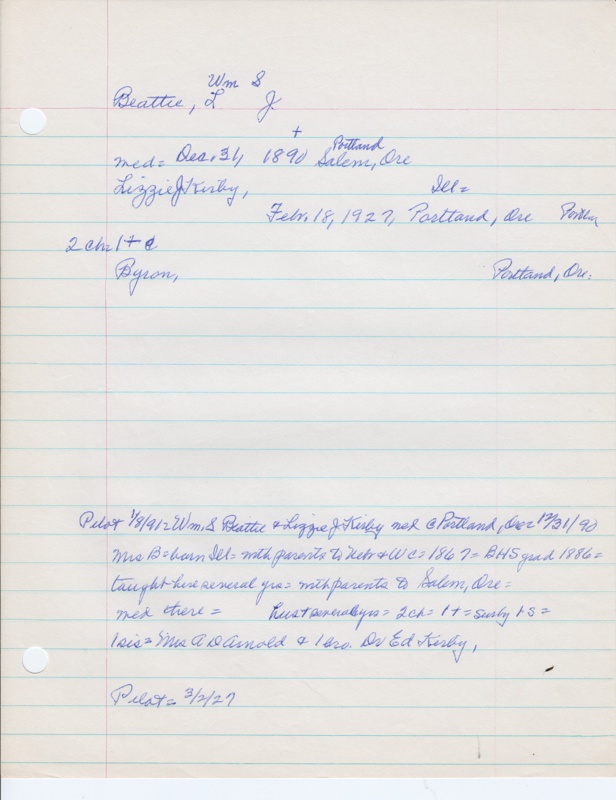 Wm S
Beattie, L J.
+
Portland
med= Dec. 31, 1890 Salem, Ore
Lizzie J Kirby, Ill=
Febr. 18, 1927, Portland, Ore
2 ch= 1 +
Byron, Portland, Ore.
Pilot 1/8/91= Wm. S Beattie & Lizzie J Kirby med @ Portland, Ore= 12/31/90
Mrs B= born Ill= mth parents to Nebr & WC= 1867= BHS grad 1886=
taught here several yrs= mth parents to Salem, Ore=
med there = several yrs= 2 ch= 1+= surby 1 S=
1 sis= Mrs A D Arnold & 1 bro. Dr Ed Kirby,
Pilot= 3/2/27